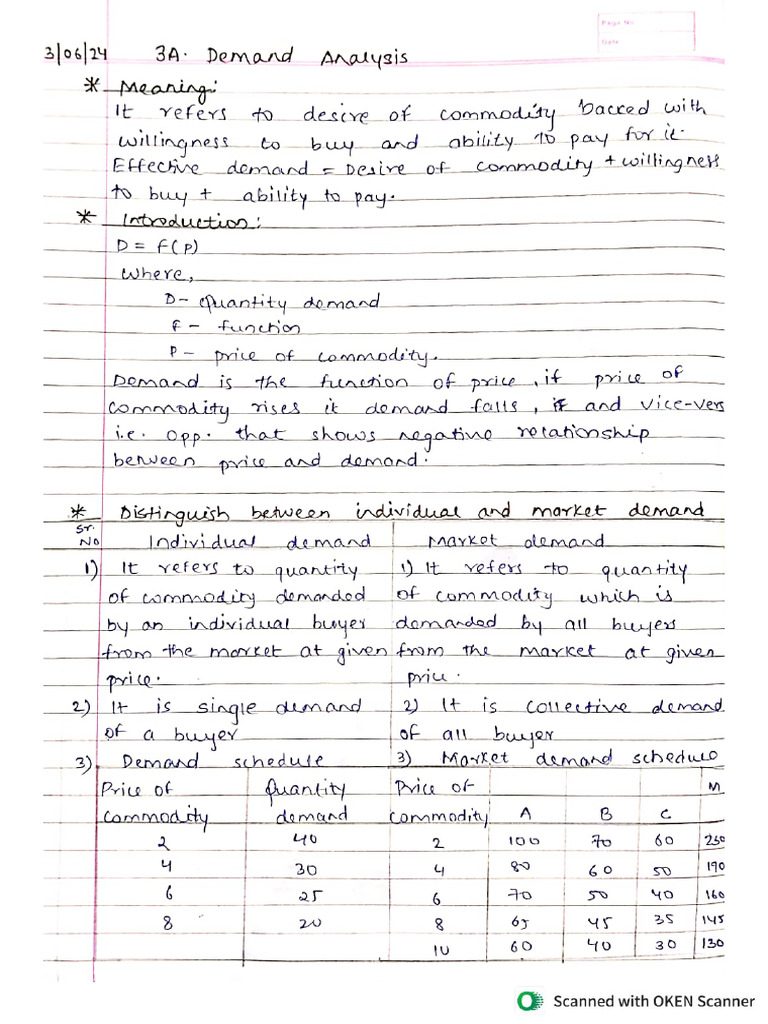 Page No
Date
3/06/24 3A. Demand Analysis
* Meaning:
It refers to desire of commodity backed with
willingness to buy and ability to pay for it.
Effective demand = Desire of commodity + willingness
to buy + ability to pay.
* Introduction:
D = f(P)
where,
D - quantity demand
f - function
P - price of commodity.
Demand is the function of price, if price of
commodity rises it demand falls, if and vice-vers
i.e. opp. that shows negative relationship
between price and demand.
* Distinguish between individual and market demand
Sr. No Individual demand Market demand
1) It refers to quantity 1) It refers to quantity
of commodity demanded of commodity which is
by an individual buyer demanded by all buyers
from the market at given from the market at given
price. price.
2) It is single demand 2) It is collective demand
of a buyer of all buyer
3) Demand schedule 3) Market demand schedule
Price of Quantity Price of M
commodity demand commodity A B C
2 40 2 100 70 60 230
4 30 4 80 60 50 190
6 25 6 70 50 40 160
8 20 8 65 45 35 145
10 60 40 30 130
Scanned with OKEN Scanner